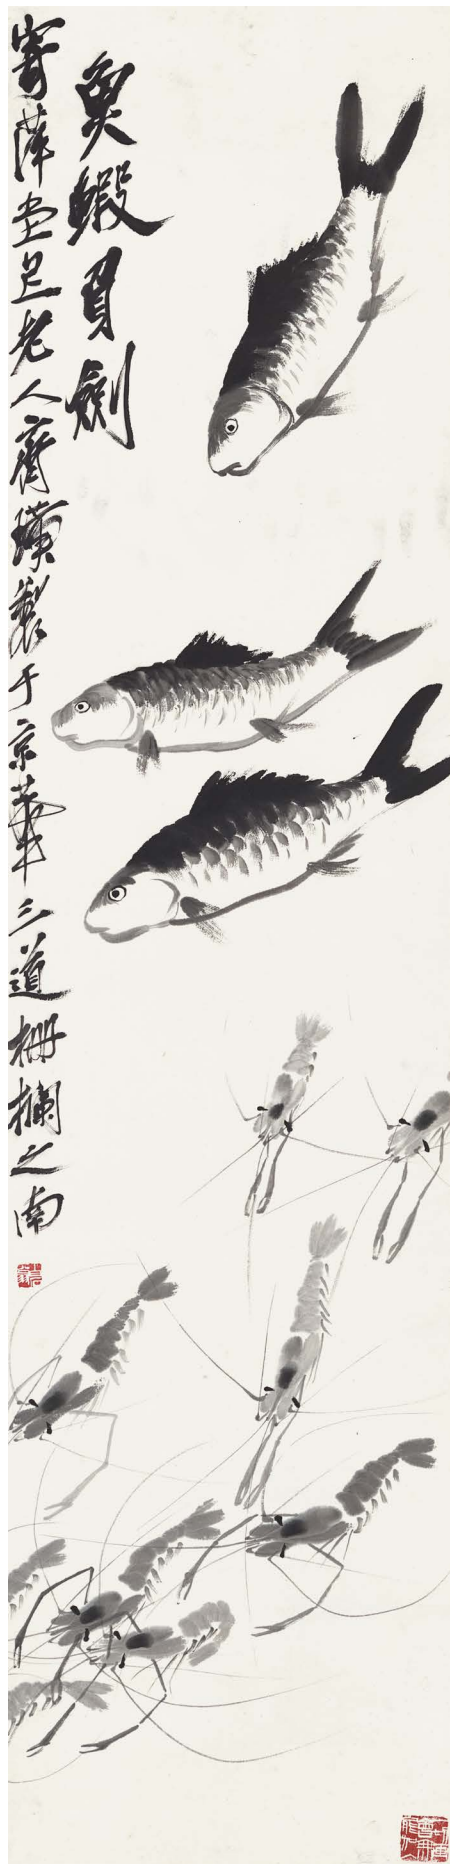 魚蝦負劍
寄萍堂上老人齊璜製于京華三道柵欄之南